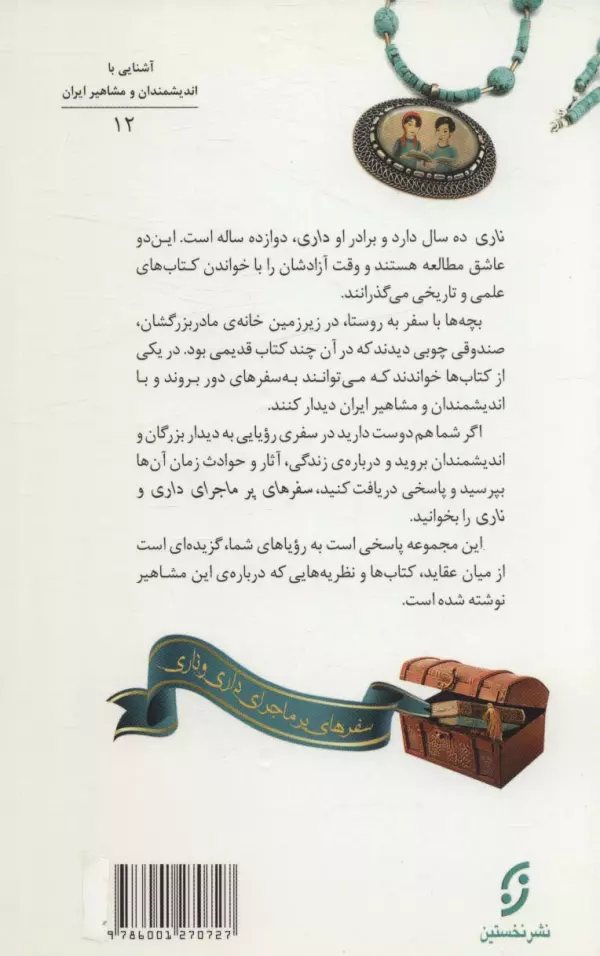 آشنایی با
اندیشمندان و مشاهیر ایران
۱۲
ناری ده سال دارد و برادر او داری، دوازده ساله است. این‌دو
عاشق مطالعه هستند و وقت آزادشان را با خواندن کتاب‌های
علمی و تاریخی می‌گذرانند.
بچه‌ها با سفر به روستا، در زیرزمین خانه‌ی مادربزرگشان،
صندوقی چوبی دیدند که در آن چند کتاب قدیمی بود. در یکی
از کتاب‌ها خواندند که می‌توانند به‌سفرهای دور بروند و با
اندیشمندان و مشاهیر ایران دیدار کنند.
اگر شما هم دوست دارید در سفری رؤیایی به دیدار بزرگان و
اندیشمندان بروید و درباره‌ی زندگی، آثار و حوادث زمان آن‌ها
بپرسید و پاسخی دریافت کنید، سفرهای پر ماجرای داری و
ناری را بخوانید.
این مجموعه پاسخی است به رؤیاهای شما، گزیده‌ای است
از میان عقاید، کتاب‌ها و نظریه‌هایی که درباره‌ی این مشاهیر
نوشته شده است.
سفرهای پر ماجرای داری و ناری
9 786001 270727
نشر نخستین